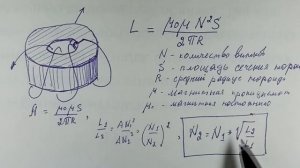 L = μ₀μN²S / 2πR
N - количество витков
S - площадь сечения
R - средний радиус тороида
μ - магнитная проницаемость
μ₀ - магнитная постоянная
A = μ₀μS / 2πR , L₁/L₂ = AN₁² / AN₂² = (N₁/N₂)² , N₂ = N₁